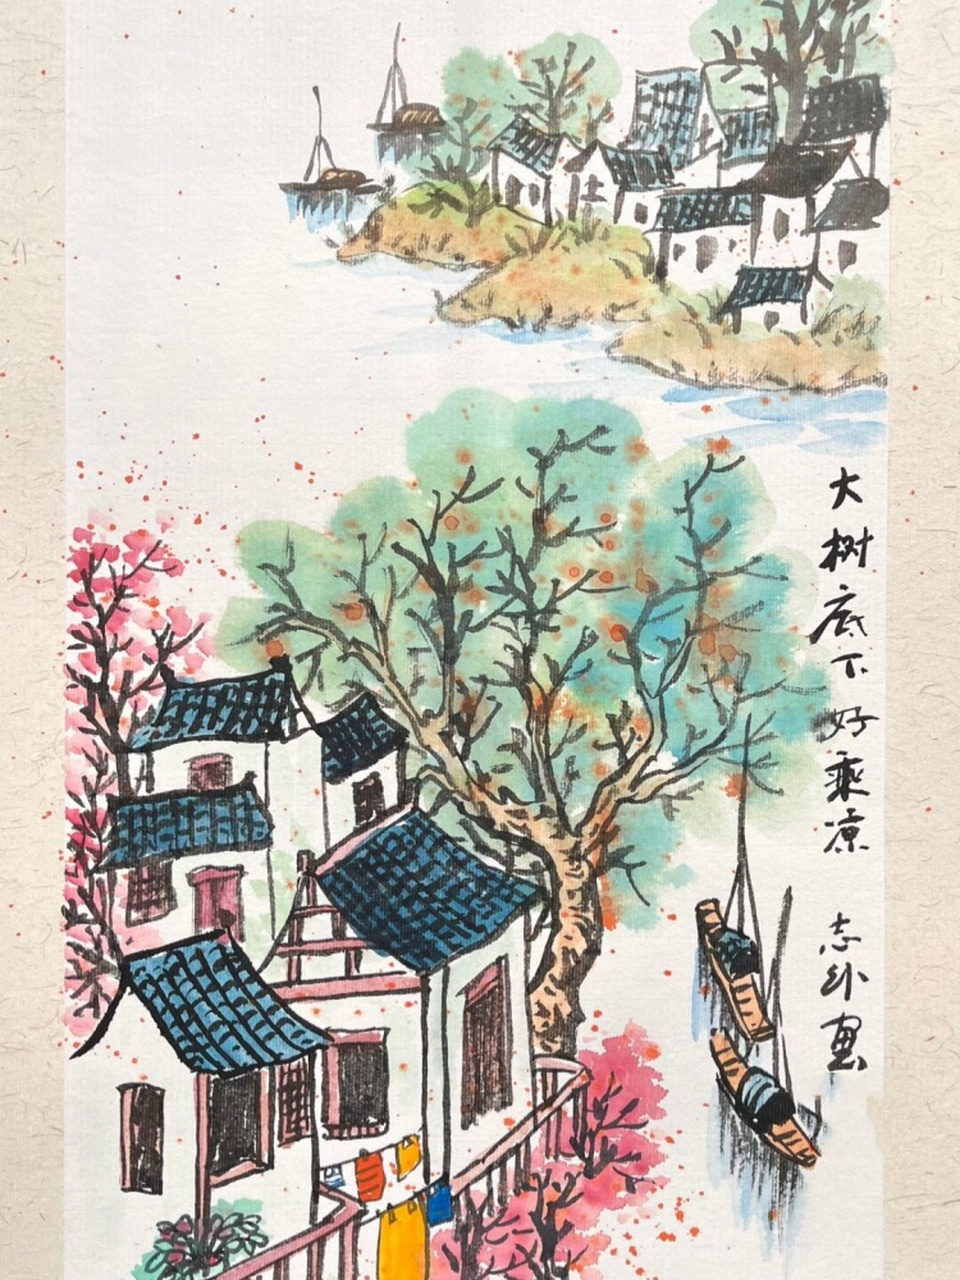 大树底下好乘凉 志外画